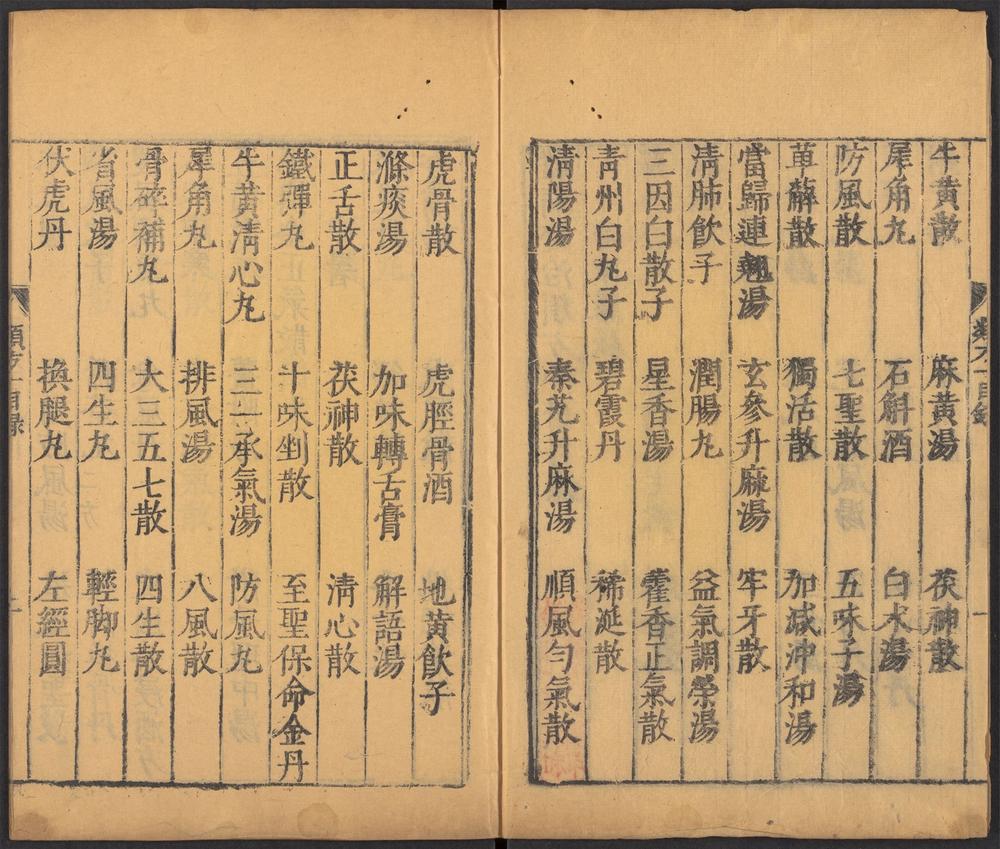 牛黃散 麻黃湯 茯神散
犀角丸 石斛酒 白朮湯
防風散 七聖散 五味子湯
萆薢散 獨活散 加減沖和湯
當歸連翹湯 玄參升麻湯 牢牙散
清肺飲子 潤腸丸 益氣調榮湯
三因白散子 星香湯 藿香正氣散
青州白丸子 碧霞丹 稀涎散
清陽湯 秦艽升麻湯 順風勻氣散
虎骨散 虎脛骨酒 地黃飲子
滌痰湯 加味轉古膏 解語湯
正舌散 茯神散 清心散
鐵彈丸 十味剉散 至聖保命金丹
牛黃清心丸 三一承氣湯 防風丸
犀角丸 排風湯 八風散
骨碎補丸 大三五七散 四生散
省風湯 四生丸 輕脚丸
伏虎丹 換腿丸 左經圓